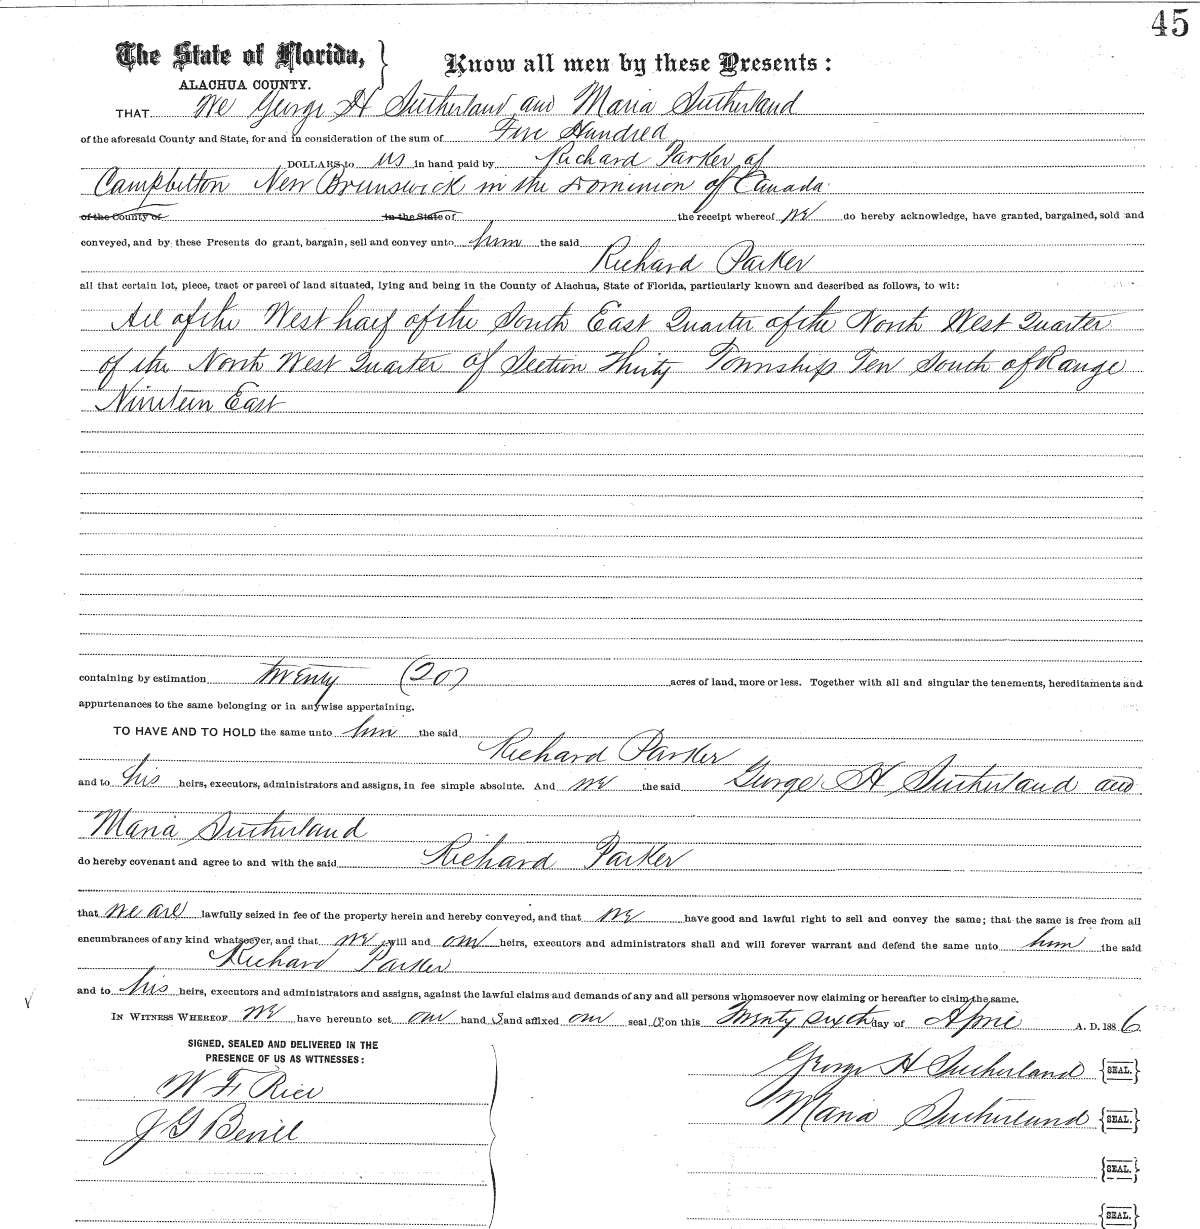 45
The State of Florida, } Know all men by these Presents:
ALACHUA COUNTY.
THAT We George H Sutherland and Maria Sutherland
of the aforesaid County and State, for and in consideration of the sum of Five Hundred
DOLLARS to us in hand paid by Richard Parker of
Campbelton New Brunswick in the Dominion of Canada
of the County of in the State of the receipt whereof we do hereby acknowledge, have granted, bargained, sold and
conveyed, and by these Presents do grant, bargain, sell and convey unto him the said
Richard Parker
all that certain lot, piece, tract or parcel of land situated, lying and being in the County of Alachua, State of Florida, particularly known and described as follows, to wit:
All of the West half of the South East Quarter of the North West Quarter
of the North West Quarter of Section Thirty Township Ten South of Range
Nineteen East
containing by estimation twenty (20) acres of land, more or less. Together with all and singular the tenements, hereditaments and
appurtenances to the same belonging or in anywise appertaining.
TO HAVE AND TO HOLD the same unto him the said
Richard Parker
and to his heirs, executors, administrators and assigns, in fee simple absolute. And we the said George H Sutherland and
Maria Sutherland
do hereby covenant and agree to and with the said Richard Parker
that we are lawfully seized in fee of the property herein and hereby conveyed, and that we have good and lawful right to sell and convey the same; that the same is free from all
encumbrances of any kind whatsoever, and that we will and our heirs, executors and administrators shall and will forever warrant and defend the same unto him the said
Richard Parker
and to his heirs, executors and administrators and assigns, against the lawful claims and demands of any and all persons whomsoever now claiming or hereafter to claim the same.
IN WITNESS WHEREOF we have hereunto set our hand s and affixed our seal s on this Twenty sixth day of April A. D. 1886
SIGNED, SEALED AND DELIVERED IN THE
PRESENCE OF US AS WITNESSES:
George H Sutherland {SEAL.}
W F Rice
Maria Sutherland {SEAL.}
J G Bevill
{SEAL.}
{SEAL.}